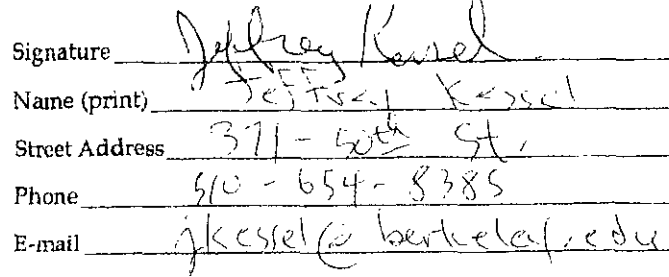 Signature Jeffrey Kessel
Name (print) Jeffrey Kessel
Street Address 371 - 50th St.
Phone 510 - 654 - 8385
E-mail jkessel@berkeley.edu